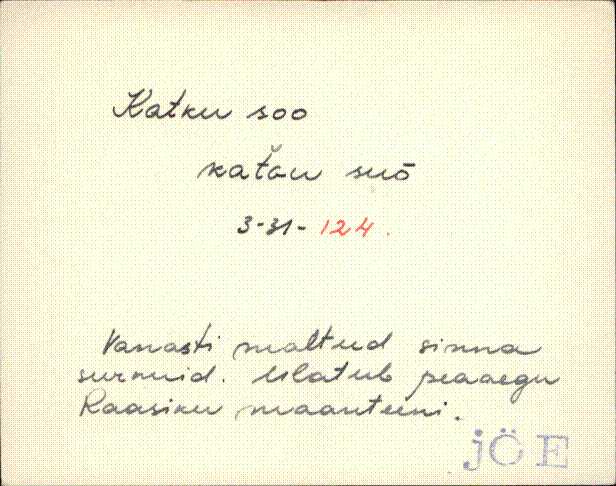 Katku soo
katˇGu suō
3-31-124.
Vanasti maltud sinna
surnuid. Ulatub peaaegu
Raasiku maanteeni.
jÖE